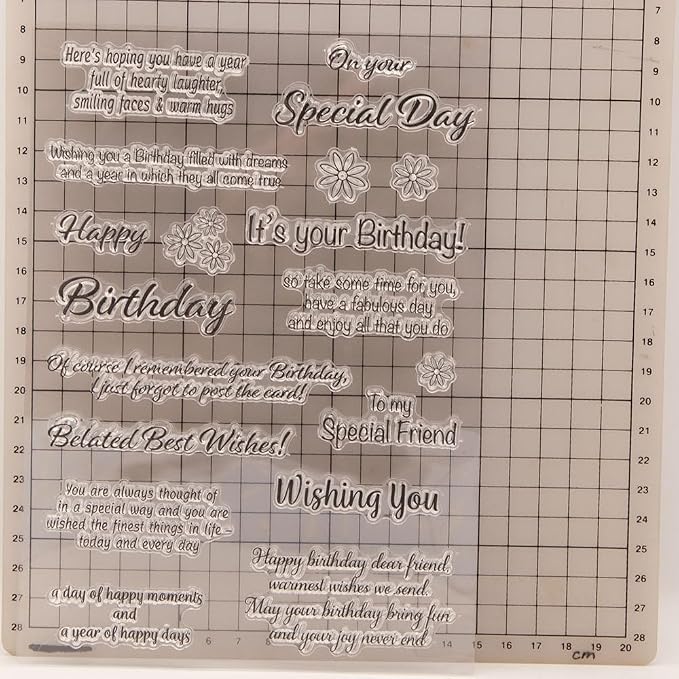 Here's hoping you have a year
full of hearty laughter,
smiling faces & warm hugs
On your
Special Day
Wishing you a Birthday filled with dreams
and a year in which they all come true
Happy
It's your Birthday!
Birthday
so take some time for you,
have a fabulous day
and enjoy all that you do
Of course I remembered your Birthday,
I just forgot to post the card!
To my
Special Friend
Belated Best Wishes!
You are always thought of
in a special way and you are
wished the finest things in life –
today and every day
Wishing You
Happy birthday dear friend,
warmest wishes we send.
May your birthday bring fun
and your joy never end.
a day of happy moments
and
a year of happy days
8
9
10
11
12
13
14
15
16
17
18
19
20
21
22
23
24
25
26
27
28
7
8
9
10
11
12
13
14
15
16
17
18
19
20
21
22
23
24
25
26
27
28
6 7 8 14 15 16 17 18 19 20
cm